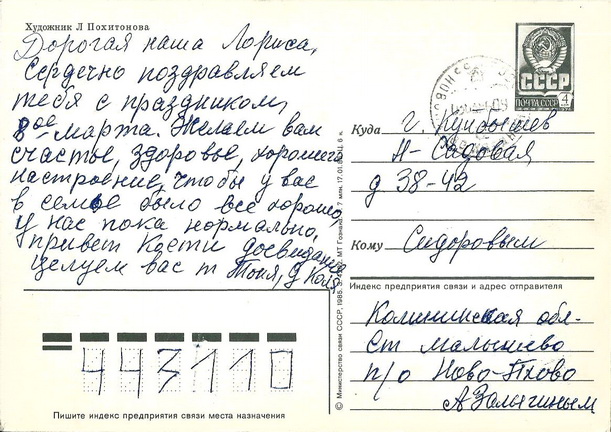 Художник Л Похитонова
Дорогая наша Лориса,
Сердечно поздравляем
тебя с праздником,
8ое марта. Желаем вам
счастье, здоровье, хорошего
настроение, чтобы у вас
в семье было всё хорошо,
у нас пока нормально,
привет Кости досвидание
целуем вас т Тоня, д Коля,
СССР
ПОЧТА СССР 4
Куда г. Куйбышев
Н-Садовая
д 38-42
Кому Сидоровым
Индекс предприятия связи и адрес отправителя
Калининская обл-
Ст малышево
п/о Ново-
А Залыгиным
443110
Пишите индекс предприятия связи места назначения
© Министерство связи СССР, 1985.